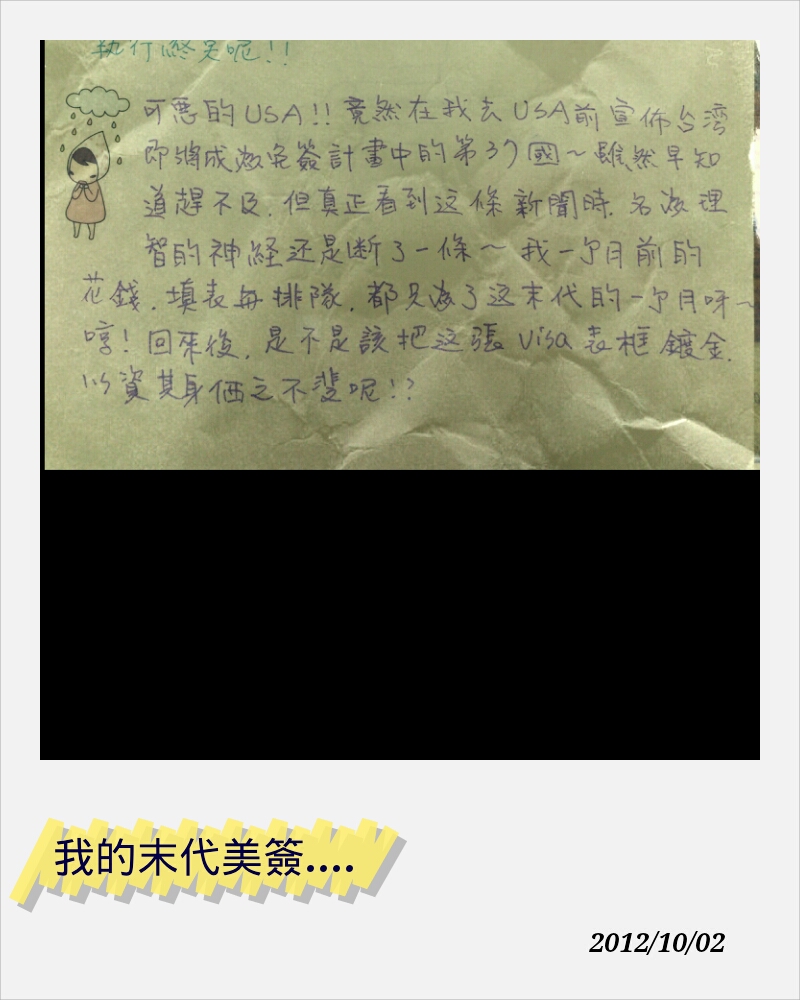 執行終見呢!!
可惡的USA!! 竟然在我去USA前宣佈台湾
即將成為免簽計畫中的第37國～雖然早知
道趕不及,但真正看到這條新聞時,名為理
智的神経还是断了一條～我一个月前的
花錢,填表与排隊,都只為了这末代的一个月呀~
哼! 回來後,是不是該把这張visa表框鍍金,
以資其身価之不斐呢!?
我的末代美簽....
2012/10/02